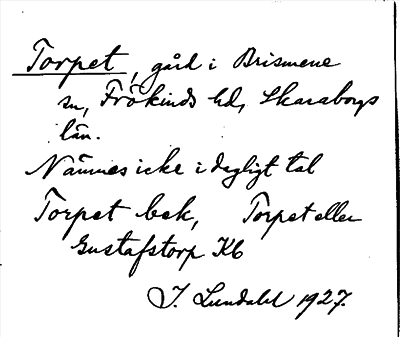 Torpet, gård i Brismene
sn, Frökinds hd, Skaraborgs
län.
Nämnes icke i dagligt tal
Torpet bek, Torpet eller
Gustafstorp Kb
J. Lundahl 1927.